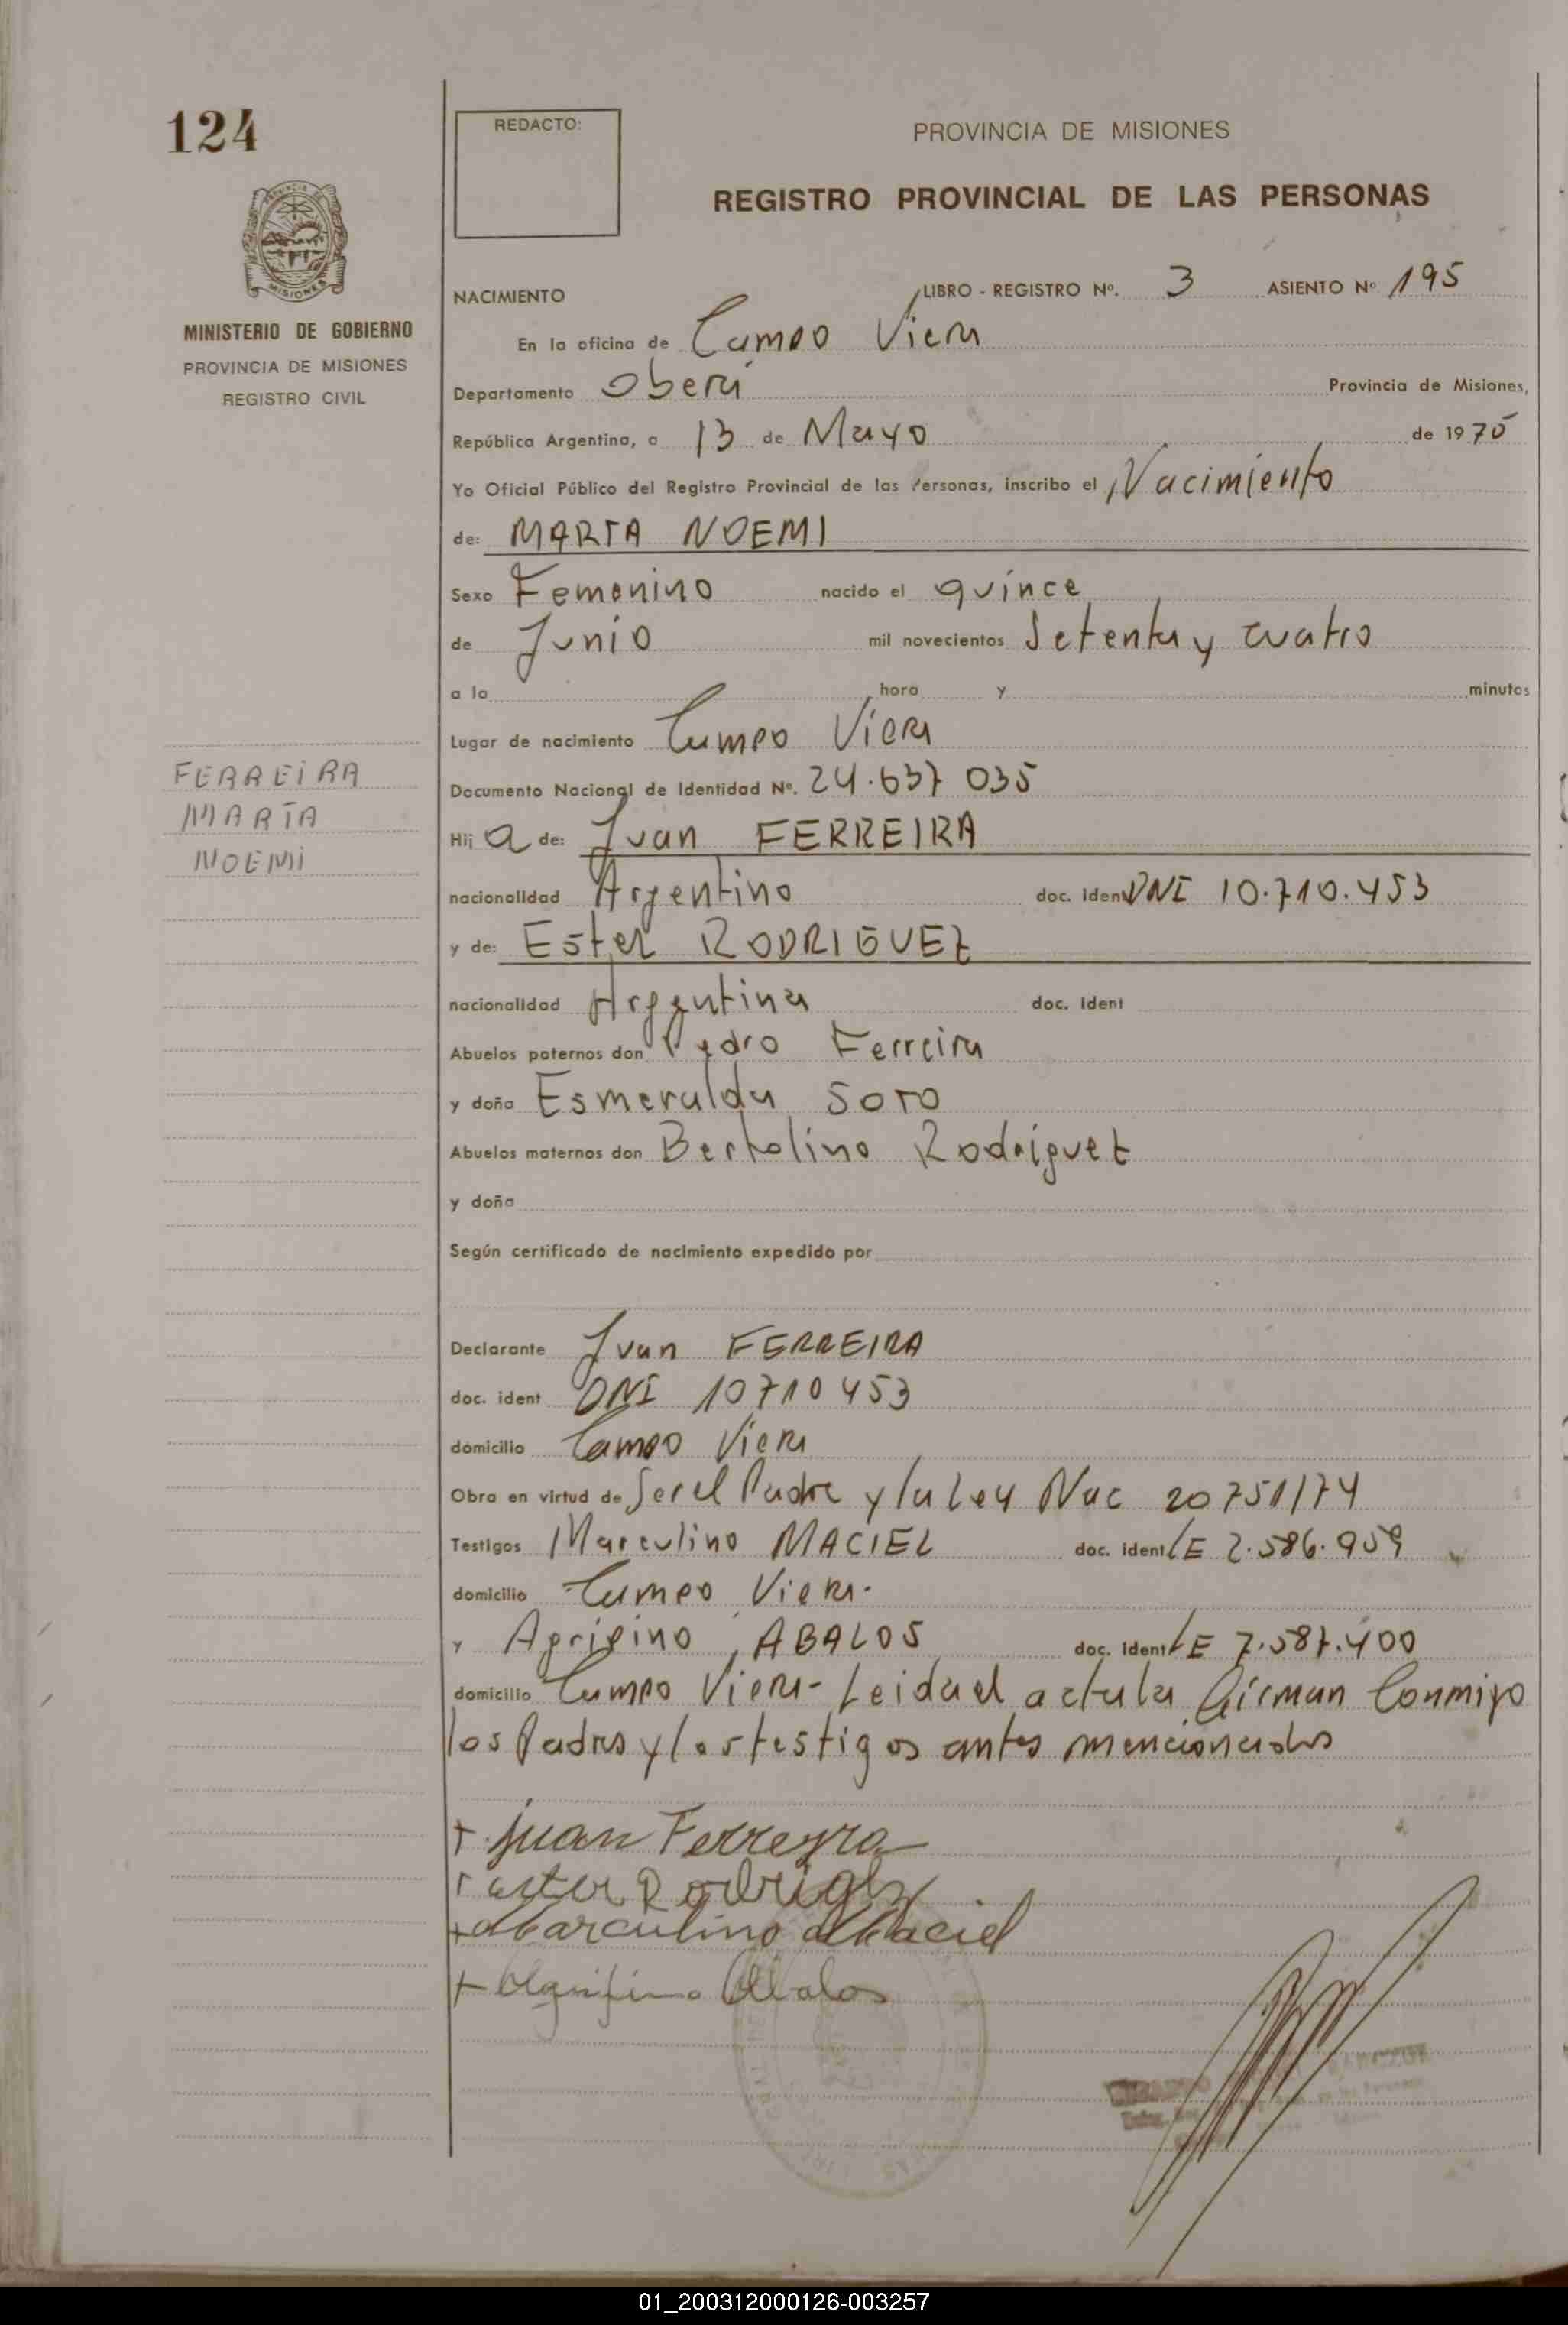 124
REDACTO:
PROVINCIA DE MISIONES
REGISTRO PROVINCIAL DE LAS PERSONAS
MISIONES
MINISTERIO DE GOBIERNO
PROVINCIA DE MISIONES
REGISTRO CIVIL
NACIMIENTO LIBRO - REGISTRO Nº. 3 ASIENTO Nº 195
En la oficina de Campo Viera
Departamento Oberá Provincia de Misiones,
República Argentina, a 13 de Mayo de 1975
Yo Oficial Público del Registro Provincial de las Personas, inscribo el Nacimiento
de: MARTA NOEMI
Sexo Femenino nacido el quince
de Junio mil novecientos Setenta y cuatro
a la hora y minutos
Lugar de nacimiento Campo Viera
FERREIRA
MARTA
NOEMI
Documento Nacional de Identidad Nº. 24.637 035
Hij a de: Juan FERREIRA
nacionalidad Argentino doc. ident DNI 10.710.453
y de: Ester RODRIGUEZ
nacionalidad Argentina doc. ident
Abuelos paternos don Pedro Ferreira
y doña Esmeralda SOTO
Abuelos maternos don Bertolino Rodriguez
y doña
Según certificado de nacimiento expedido por
Declarante Juan FERREIRA
doc. ident DNI 10710453
domicilio Campo Viera
Obra en virtud de Ser el Padre y la Ley Nac 20751/74
Testigos Marculino MACIEL doc. ident LE 2.586.959
domicilio Campo Viera.
y Agripino ABALOS doc. ident LE 7.587.400
domicilio Campo Viera- Leida el acta la Firman Conmigo
los Padres y los testigos antes mencionados
+ Juan Ferreyra
ester Rodrigez
+ Marculino Maciel
+ Agripino Abalos
01_200312000126-003257